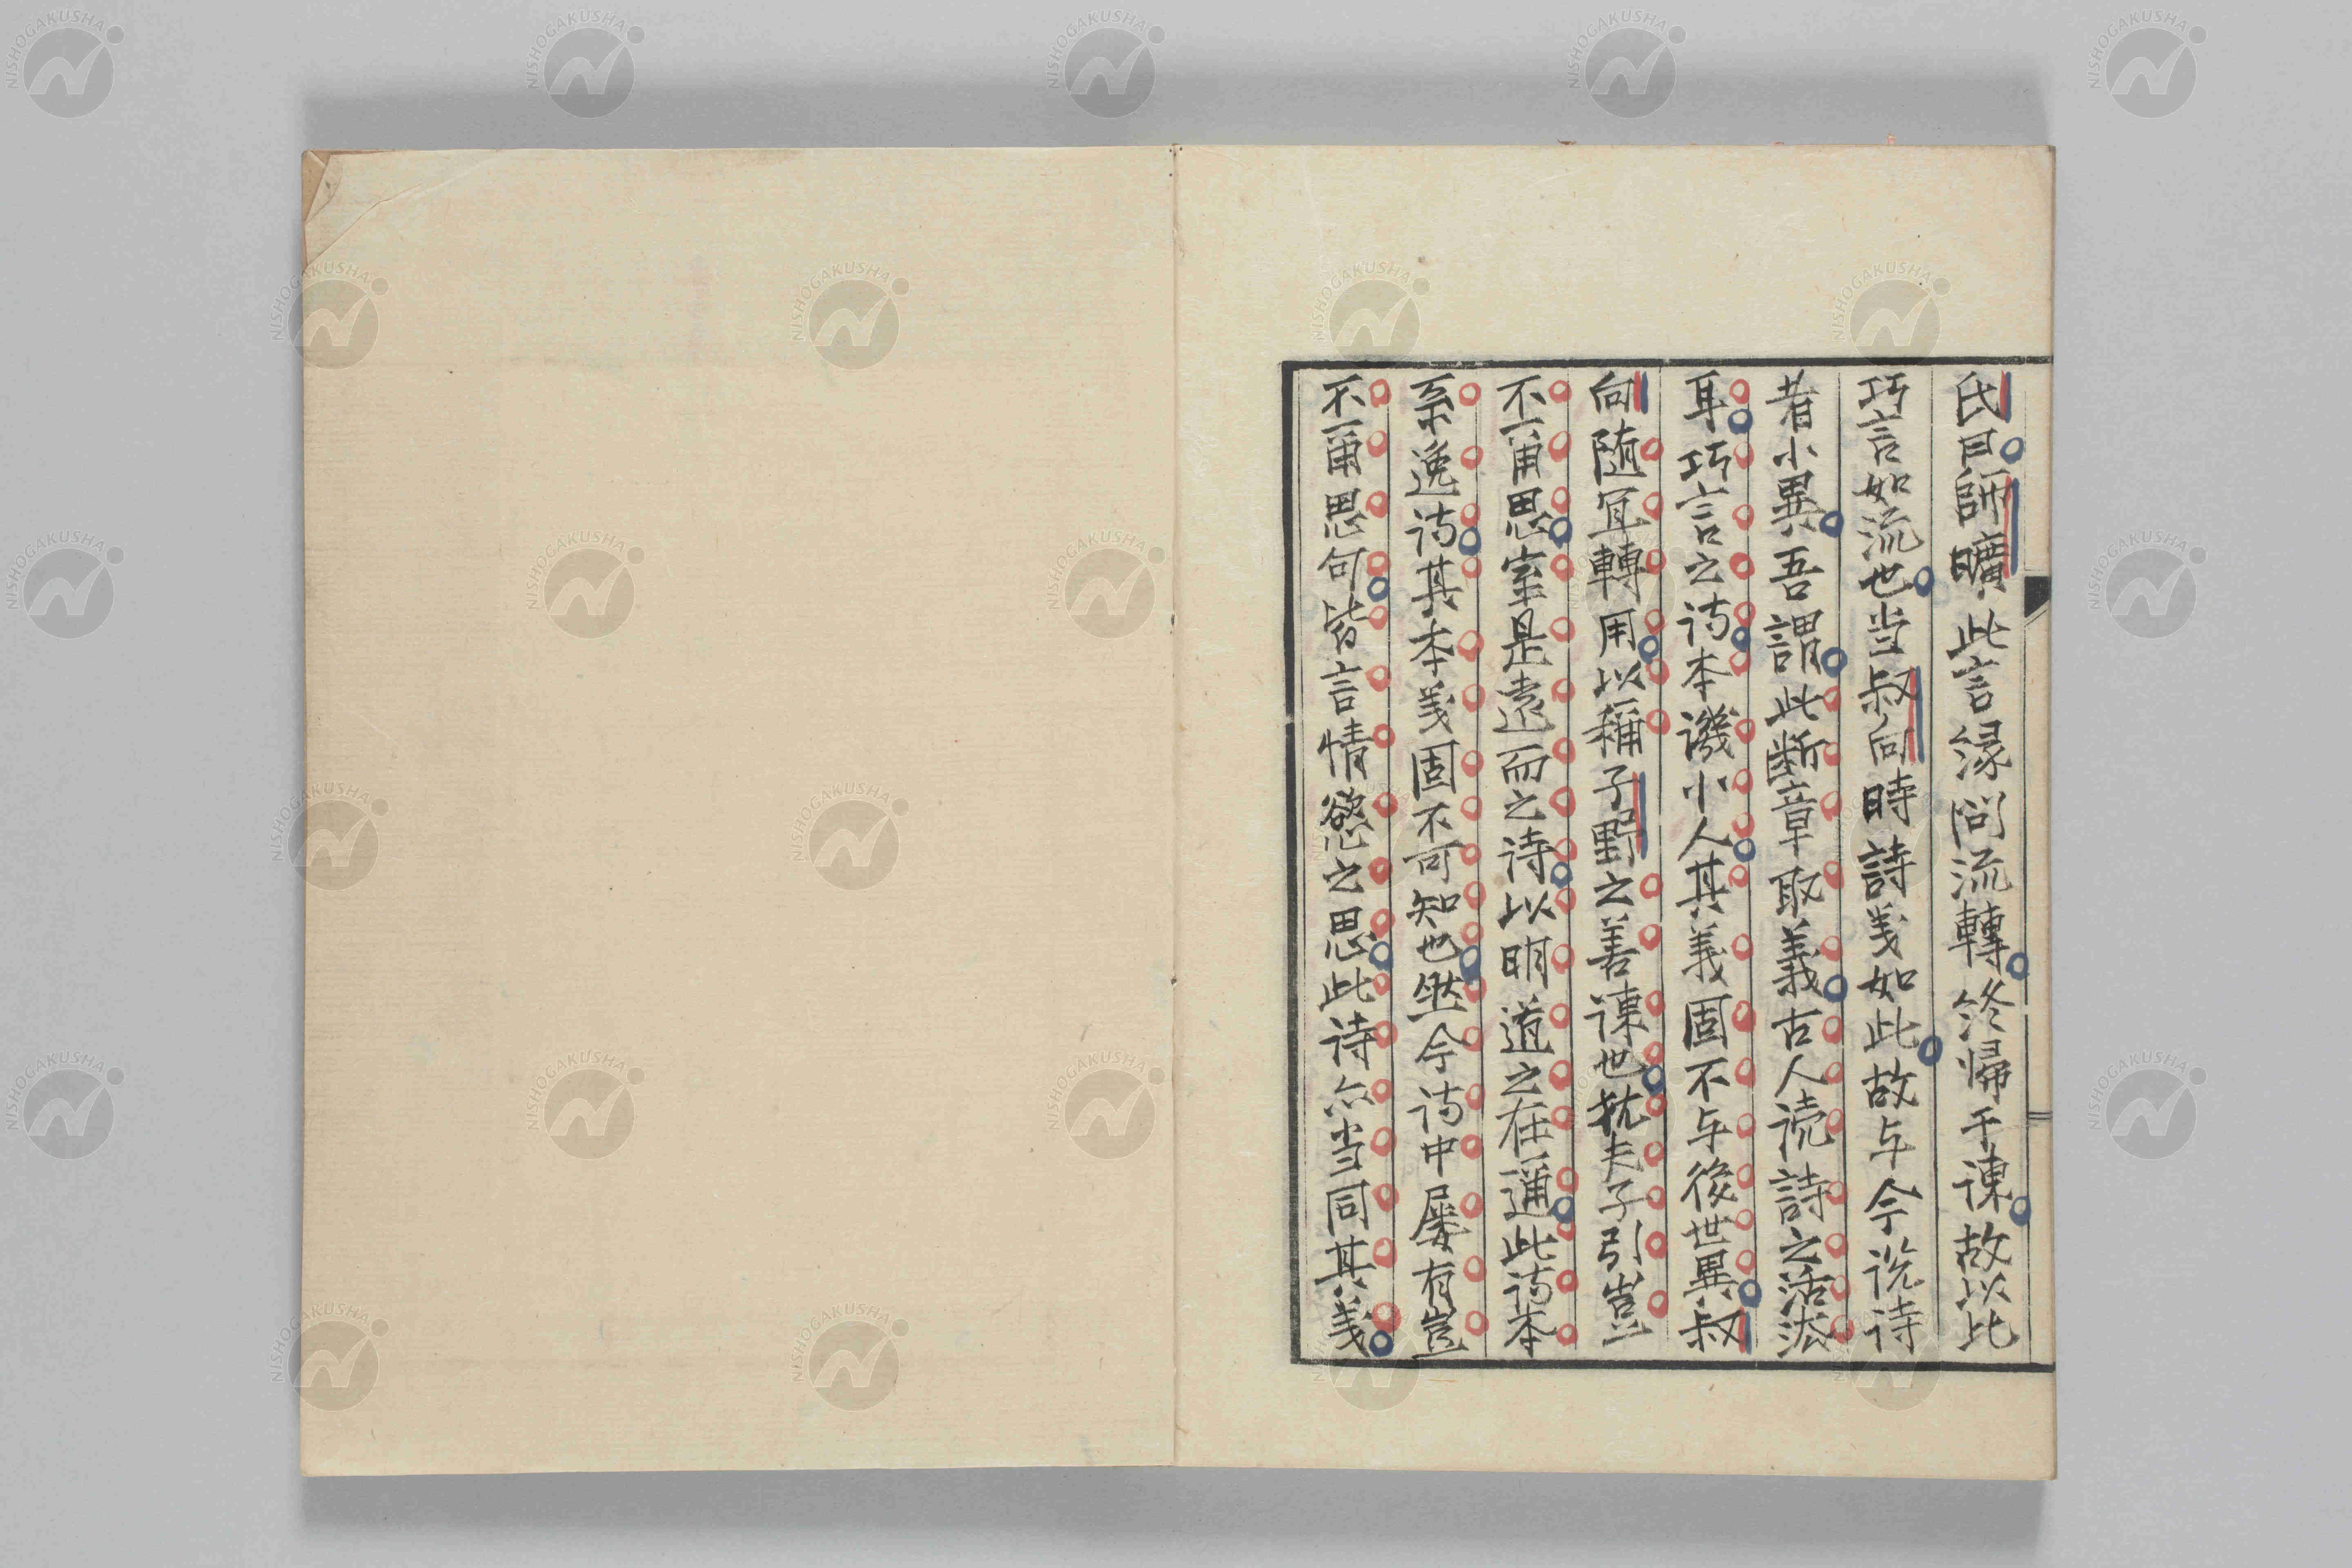 氏曰師曠此言緣問流轉終帰于諌故以比
巧言如流也当叔向時詩義如此故与今説诗
者小異吾謂此断章取義古人読詩之活法
耳巧言之诗本譏小人其義固不与後世異叔
向随冝轉用以稱子野之善諌也犹夫子引豈
不爾思室是遠而之诗以明道之在邇此诗本
系逸诗其本義固不可知也然今诗中屡有豈
不爾思句皆言情慾之思此诗亦当同其義
NISHOGAKUSHA